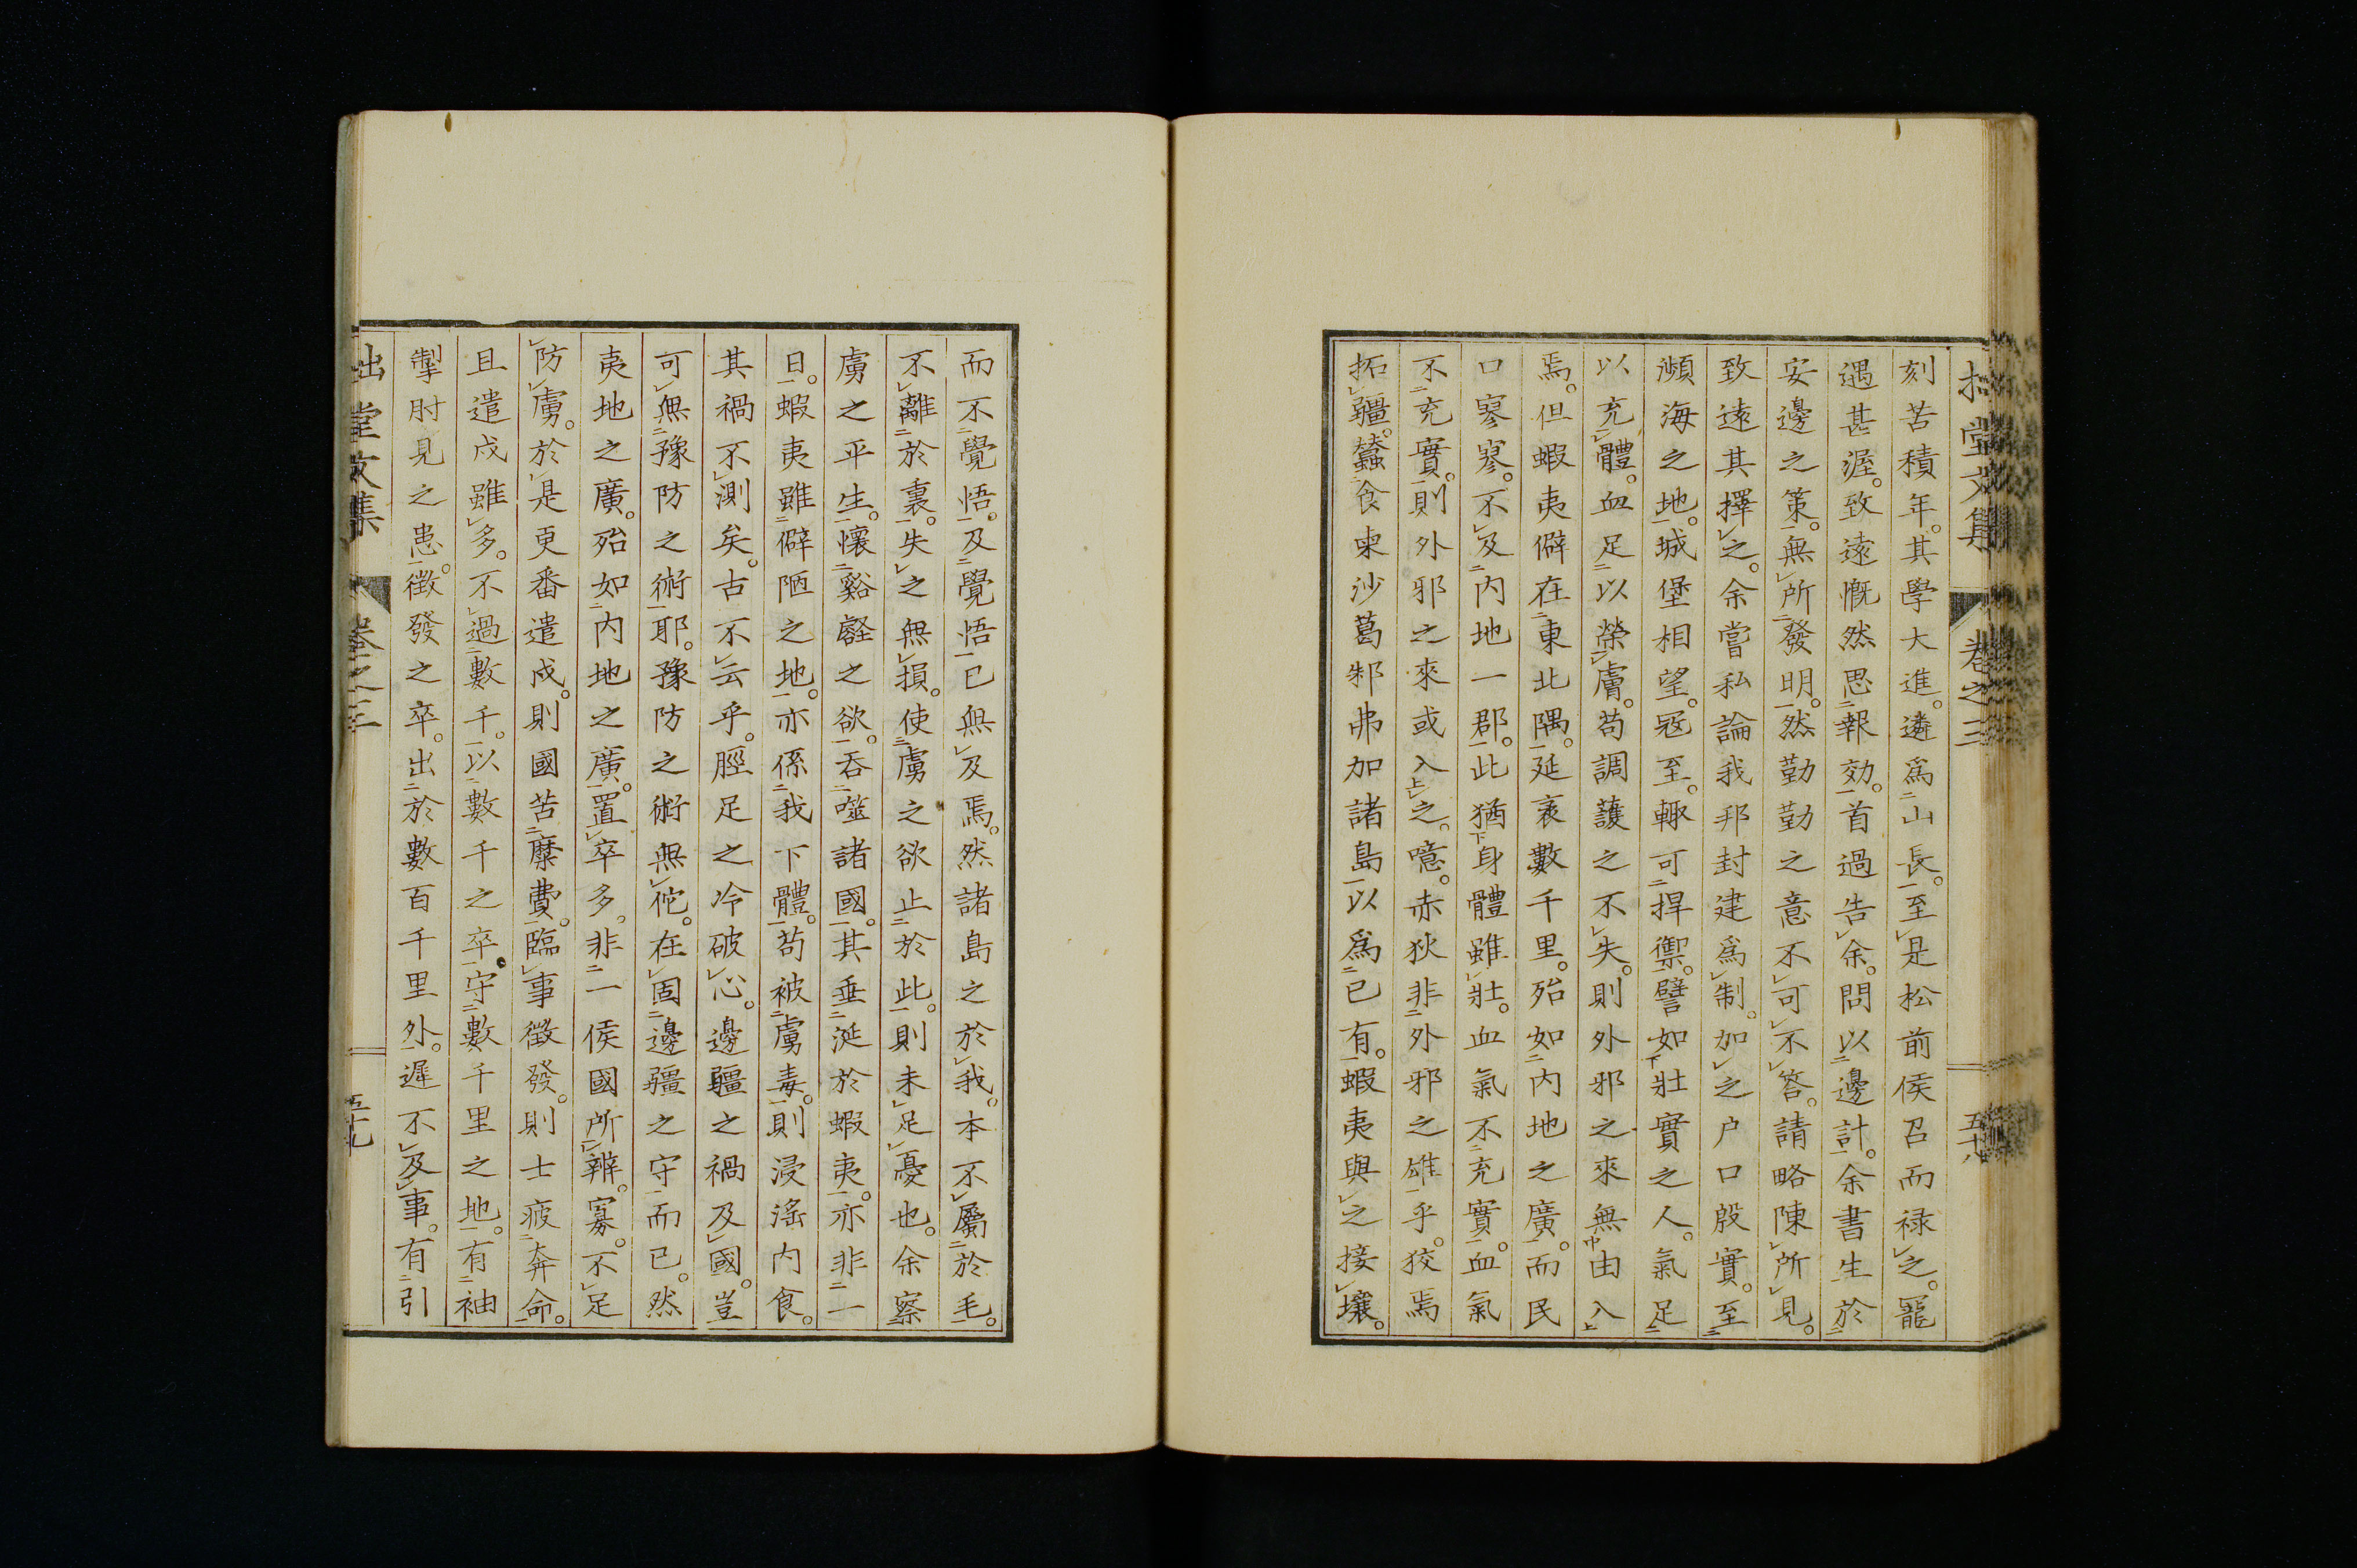 拙堂文集 卷之三 五十八
刻苦積年。其學大進。遴爲山長。至是松前侯召而祿之。寵
遇甚渥。致遠慨然思報效。首過告余。問以邊計。余書生於
安邊之策。無所發明。然勤勤之意不可不答。請略陳所見。
致遠其擇之。余嘗私論我邦封建爲制。加之户口殷實。至
瀕海之地。城堡相望。寇至。輙可捍禦。譬如壯實之人。氣足
以充體。血足以榮膚。苟調護之不失。則外邪之來無由入
焉。但蝦夷僻在東北隅。延袤數千里。殆如内地之廣。而民
口寥寥。不及内地一郡。此猶身體雖壯。血氣不充實。血氣
不充實。則外邪之來或入之。噫。赤狄非外邪之雄乎。狡焉
拓疆。蠶食柬沙葛郲弗加諸島以爲已有。蝦夷與之接壤。
而不覺悟。及覺悟已無及焉。然諸島之於我。本不屬於毛。
不離於裏。失之無損。使虜之欲止於此。則未足憂也。余察
虜之平生。懷谿壑之欲。吞噬諸國。其垂涎於蝦夷。亦非一
日。蝦夷雖僻陋之地。亦係我下體。苟被虜毒。則浸淫内食。
其禍不測矣。古不云乎。脛足之冷破心。邊疆之禍及國。豈
可無豫防之術耶。豫防之術無佗。在固邊疆之守而已。然
夷地之廣。殆如内地之廣。置卒多。非一侯國所辨。寡。不足
防虜。於是更番遣戍。則國苦縻費。臨事徵發。則士疲奔命。
且遣戍雖多。不過數千。以數千之卒。守數千里之地。有袖
掣肘見之患。徵發之卒。出於數百千里外。遲不及事。有引
拙堂文集 卷之三 五十九